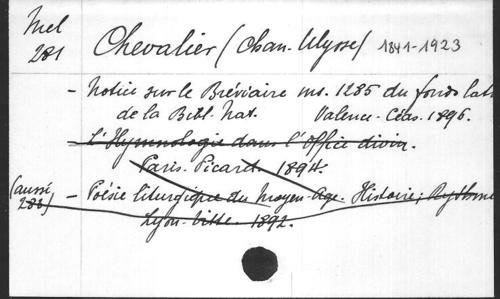 Mel
281
Chevalier (Chan. Ulysse) 1841-1923
- Notice sur le Bréviaire ms. 1285 du fonds lat.
de la Bibl. Nat. Valence. Céas. 1896.
- L'Hymnologie dans l'Office divin.
Paris. Picard. 1894.
(aussi - Poésie liturgique du Moyen-Age. Histoire; Rythme
281) Lyon. Vitte. 1892.